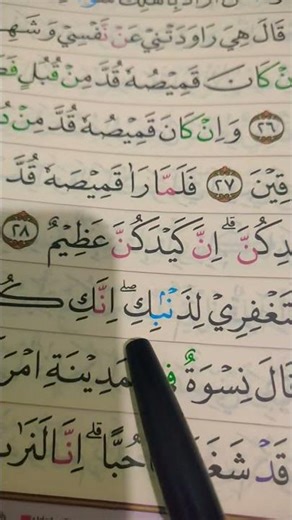 قَالَ هِيَ رَاوَدَتْنِيْ عَنْ نَّفْسِيْ وَشَهِ
نْ كَانَ قَمِيْصُهٗ قُدَّ مِنْ قُبُلٍ فَصَ
٢٦ وَاِنْ كَانَ قَمِيْصُهٗ قُدَّ مِنْ دُ
قِيْنَ ٢٧ فَلَمَّا رَاٰ قَمِيْصَهٗ قُدَّ
دِكُنَّ ۗ اِنَّ كَيْدَكُنَّ عَظِيْمٌ ٢٨
تَغْفِرِيْ لِذَنْۢبِكِ ۖ اِنَّكِ كُ
قَالَ نِسْوَةٌ فِى مَدِيْنَةِ امْرَ
قَدْ شَغَ حُبًّا ۗ اِنَّا لَنَرٰ